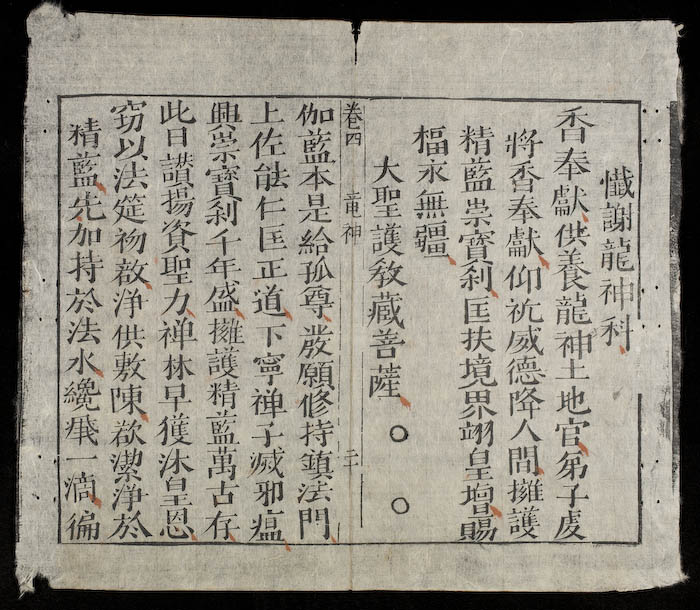 懺謝龍神科
香奉獻供養龍神土地官弟子虔
將香奉獻仰祈威德降人間擁護
精藍崇寳刹匡扶境界翊皇增賜
楅永無疆
大聖護教藏菩薩 ○ ○
卷四 竜神 二
伽藍本是給孤尊發願修持鎮法門
上佐能仁匡正道下寧禅子滅邪瘟
興崇寳刹千年盛擁護精藍萬古存
此日讃揚資聖力禅林早獲沐皇恩
窃以法筵初啟淨供敷陳欲潔淨於
精藍先加持於法水纔飛一滴徧